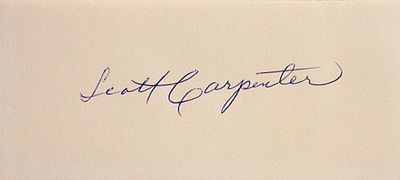 Scott Carpenter